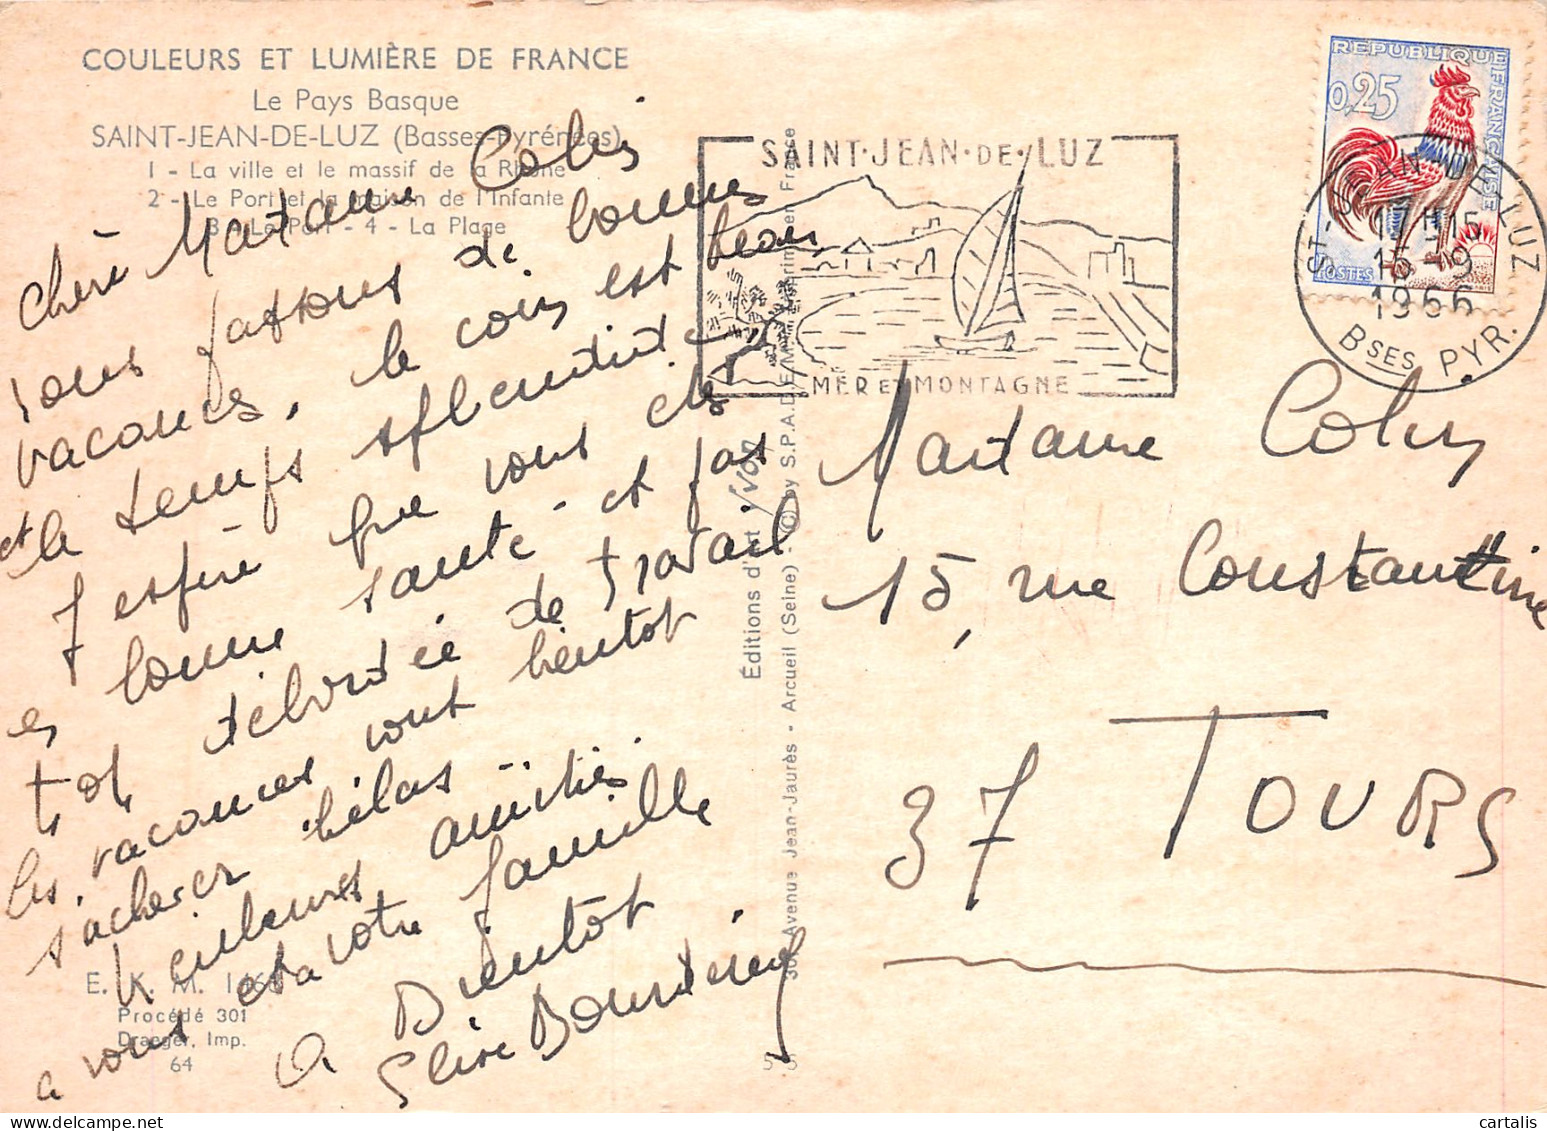 COULEURS ET LUMIÈRE DE FRANCE
Le Pays Basque
SAINT-JEAN-DE-LUZ (Basses-Pyrénées)
1 - La ville et le massif de la Rhune
2 - Le Port et la maison de l'Infante
3 - Le Port - 4 - La Plage
Chère Madame Colin
Nous passons de bonnes
vacances, le coin est beau,
et le temps splendide
J'espère que vous etes
en bonne santé et pas
trop débordée de travail
les vacances vont bientot
s'achever hélas
Meilleures amitiés
a vous et a votre famille
A Bientot
Elise
E. K. M.
Procédé 301
Draeger, Imp.
64
Éditions d'art Yvon
30, Avenue Jean-Jaurès - Arcueil (Seine) - © by S.P.A.D.E.M. - Imprimé en France
SAINT·JEAN·DE·LUZ
MER ET MONTAGNE
REPUBLIQUE FRANÇAISE
0,25
POSTES
ST-JEAN-DE-LUZ
17H15
16-9
1966
BSES PYR.
Madame Colin
15, rue Constantine
37 TOURS